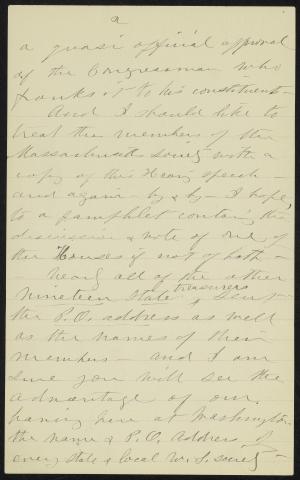 2
a quasi official approval
of the Congressman who
franks it to his constituent -
And I should like to
treat the members of the
Massachusetts society with a
copy of this Hear'g speech -
and again - by & by - I hope,
to a pamphlet contain'g the
discussion & vote of one of
the Houses if not of both -
nearly all of the other
nineteen state treasurers sent
the P.O. address as well
as the names of their
members - and I am
sure you will see the
advantage of our
having here at Washington
the name & P.O. address of
every state & local W.S. society -